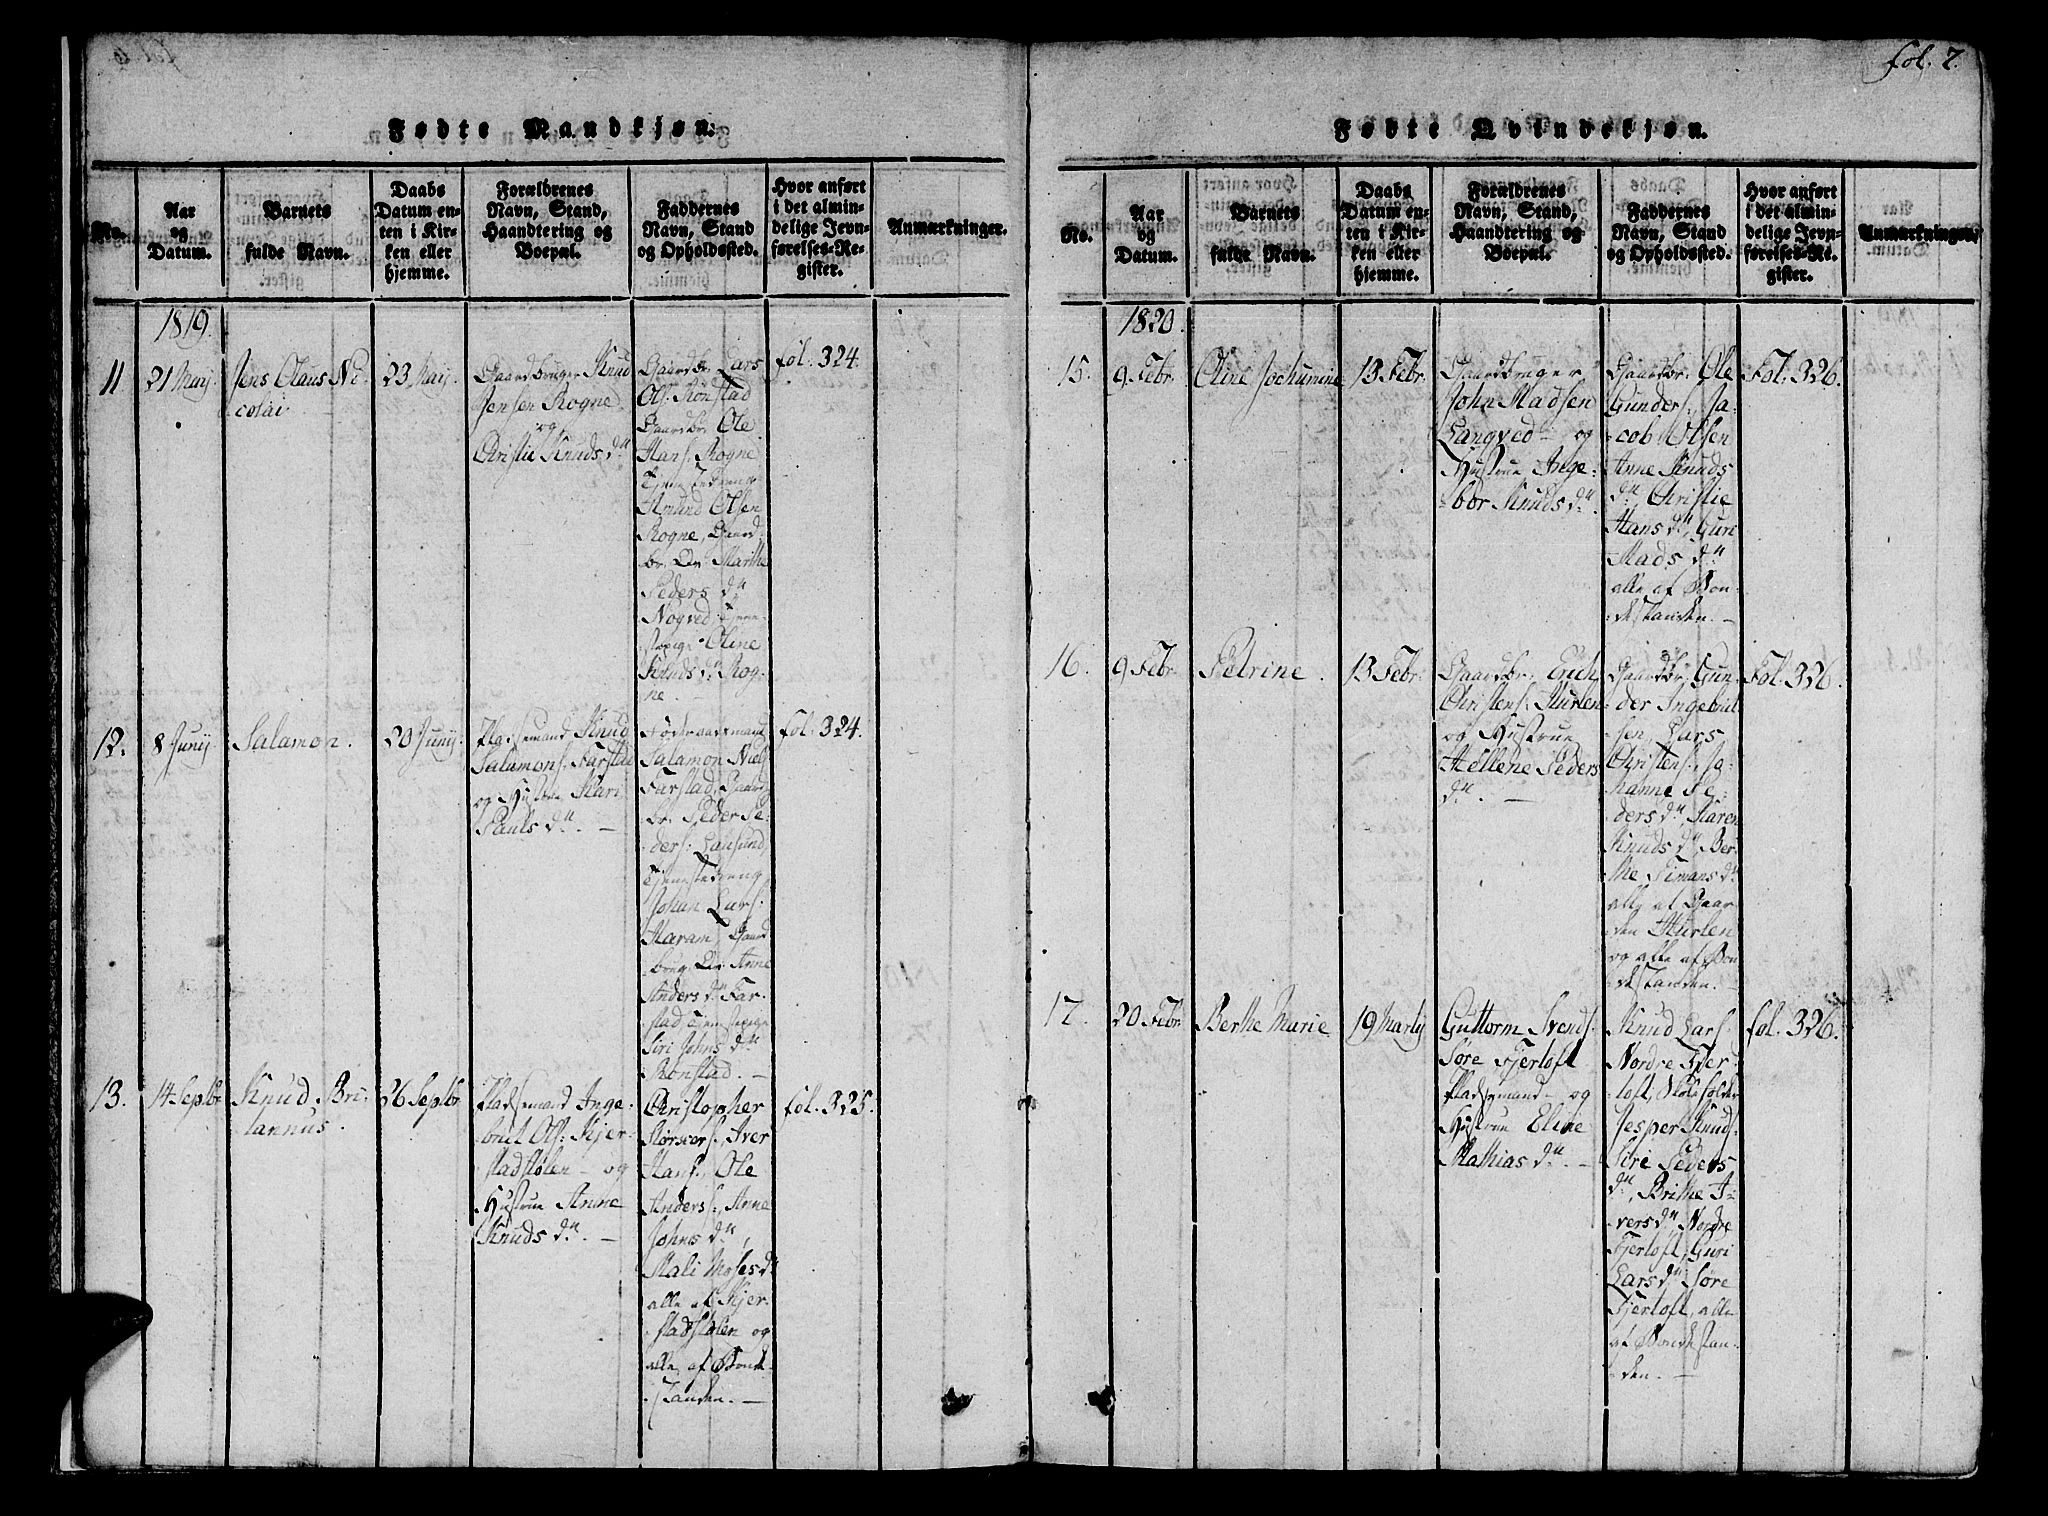 fol. 7.
Fødte Mandkjøn.
No.
Aar
og
Datum.
Barnets
fulde Navn.
Daabs
Datum en-
ten i Kir-
ken eller
hjemme.
Forældrenes
Navn, Stand,
Haandtering og
Boepæl.
Faddernes
Navn, Stand
og Opholdssted.
Hvor anført
i det almin-
delige Jevn-
førelses-Re-
gister.
Anmærkninger.
1819.
11
21 Maij
Jens Olaus Ni-
colai
23 Maij.
Gaardbruger Knud
Jensen Rogne
og
Christie Knuds dtr
Gaardbr. Lars
Ols. Rønstad
Gaardbr. Ole
Hans. Rogne
Tjenestedreng
Amund Olsen
Rogne, Gaard-
br. Marthe
Peders dtr
Nogved, Tjene-
stepige Oline
Knuds dtr Rog-
ne.
fol. 324.
12.
8 Junij.
Salamon.
20 Junij.
Pladsemand Knud
Salamons. Farstad
og Hustrue Kari
Pauls dtr. –
Føderaadsmand
Salamon Niels.
Farstad, Gaard-
br. Peder Pe-
ders. Lausund,
Tjenestedreng
Johan Lars.
Haram, Gaard-
brug. Anne
Anders dtr Far-
stad Tjenestepige
Siri Johns dtr
Rønstad. –
fol. 324.
13.
14 Septbr
Knud Bri-
tannus.
26 Septbr.
Pladsemand Inge-
brit Ols. Kjer-
stadstølen – og
Hustrue Anne
Knuds dtr. –
Christopher
Iver
Hans., Ole
Anders., Anne
Johns dtr,
Mali Moses dtr
alle af Kjer-
stadstølen og
alle af Bonde-
standen. –
fol. 325.
Fødte Qvindekjøn.
No.
Aar
og
Datum.
Barnets
fulde Navn.
Daabs
Datum en-
ten i Kir-
ken eller
hjemme.
Forældrenes
Navn, Stand,
Haandtering og
Boepæl.
Faddernes
Navn, Stand
og Opholdssted.
Hvor anført
i det almin-
delige Jevn-
førelses-Re-
gister.
Anmærkninger.
1820.
15.
9 Febr.
Oline Jochumine
13 Febr.
Gaardbruger
John Madsen
Langved – og
Hustrue Inge-
bor Knuds dtr.
Gaardbr. Ole
Gunders., Ja-
cob Olsen
Anne Knuds
dtr Christie
Hans dtr, Guri
Mads dtr
alle af Bon-
destanden. –
Fol. 326.
16.
9 Febr.
Petrine.
13 Febr.
Gaardbr. Erich
Christens. Hurlen
og Hustrue
Hellene Peders
dtr. –
Gaardbr. Gun-
der Ingebrit-
sen, Lars
Christens., Jo-
hanne Pe-
ders dtr, Karen
Knuds dtr, Ber-
the Simans dtr
alle af Gaar-
den Hurlen
og alle af Bon-
destanden. –
Fol. 326.
17.
20 Febr.
Berthe Marie
19 Martij
Guttorm Svends.
Søre Fjertoft
Pladsemand – og
Hustrue Eline
Mathias dtr. –
Knud Lars.
Nordre Fjer-
toft, Skoleholder
Jesper Knuds.
Siri Peders
dtr, Brithe I-
vers dtr Nordre
Fjertoft, Guri
Lars dtr Søre
Fjertoft, alle
af Bondestan-
den. –
fol. 326.